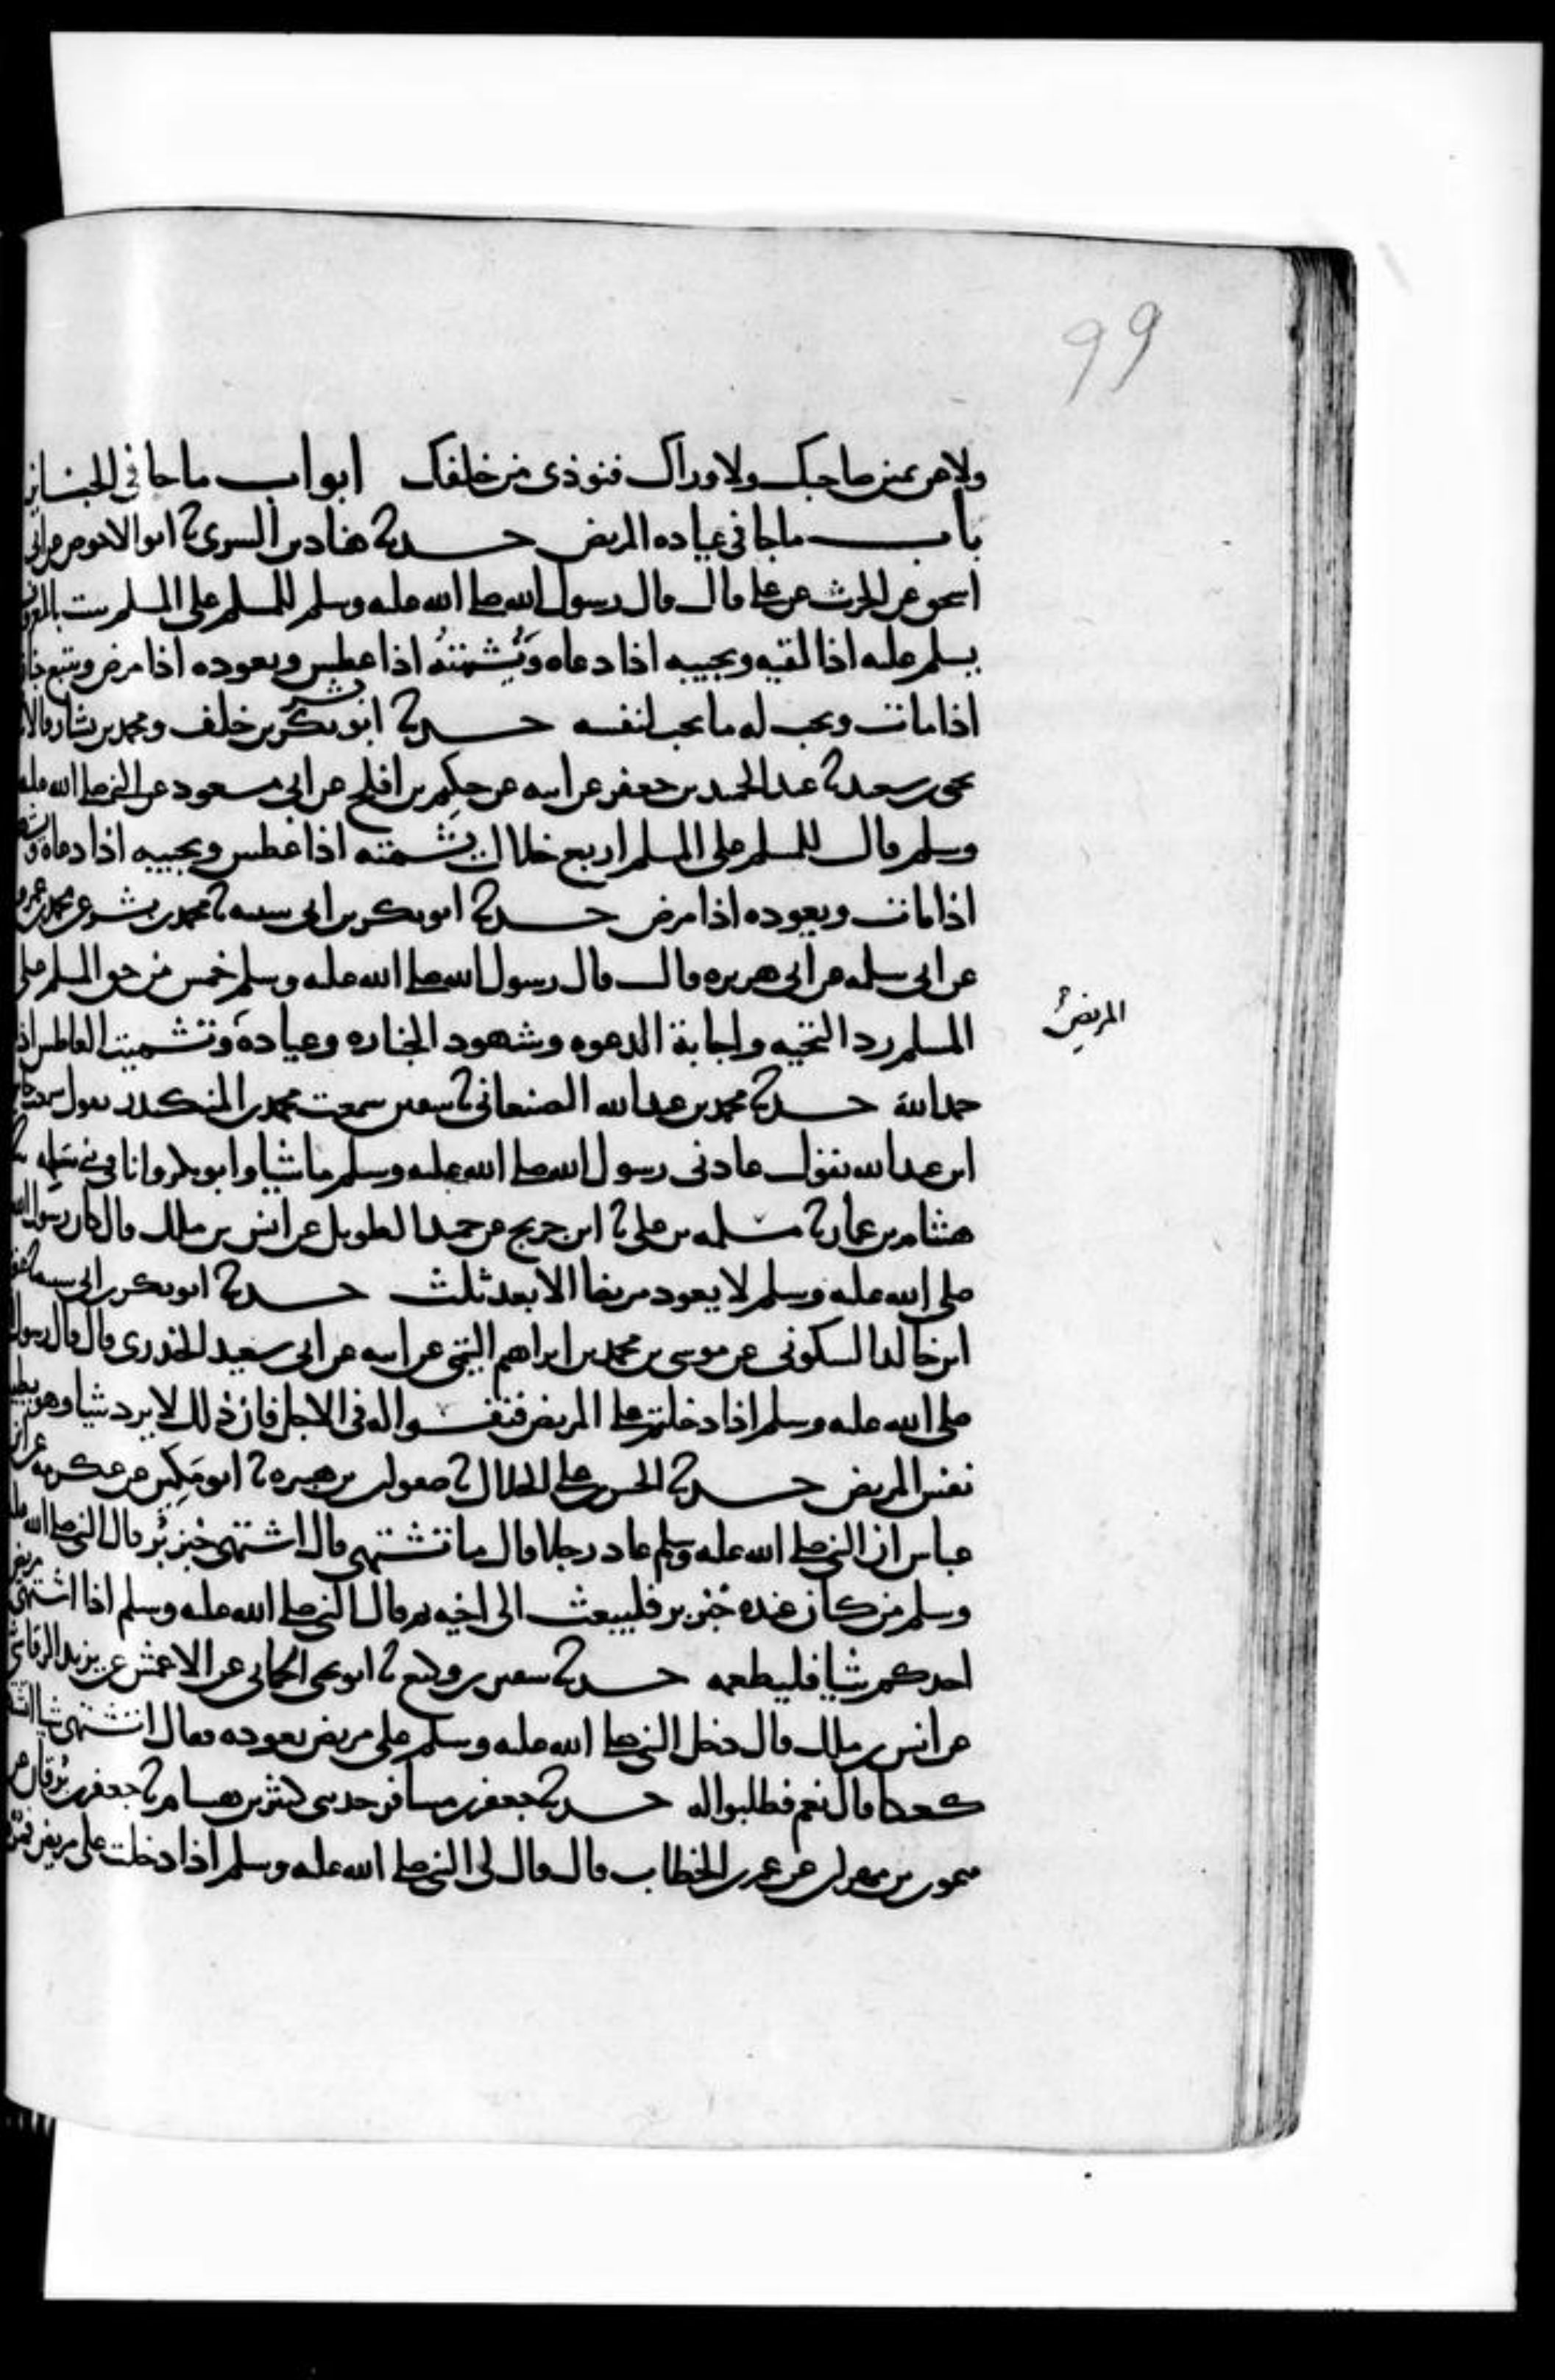 99
ولا عن يمين صاحبك ولا وراك فتوذى من خلفك ابواب ماجا في الجنايز
باب ماجا في عياده المريض حدثنا هناد بن السري ثنا ابو الاحوص عن ابي
اسحق عن الحرث عن علي قال قال رسول الله صلى الله عليه وسلم للمسلم على المسلم ست بالمعروف
يسلم عليه اذا لقيه ويجيبه اذا دعاه ويُشمته اذا عطس ويعوده اذا مرض ويتبع
اذا مات ويحب له ما يحب لنفسه حدثنا ابو بشر بكر بن خلف ومحمد بن بشار قالا
يحيى بن سعيد ثنا عبد الحميد بن جعفر عن ابيه عن حكيم بن افلح عن ابي مسعود عن النبي صلى الله عليه
وسلم قال للمسلم على المسلم اربع خلال يشمته اذا عطس ويجيبه اذا دعاه
اذا مات ويعوده اذا مرض حدثنا ابو بكر بن ابي شيبه ثنا محمد بن بشر عن محمد بن عمرو
عن ابي سلمه عن ابي هريره قال قال رسول الله صلى الله عليه وسلم خمس من حق المسلم على
المسلم رد التحيه واجابة الدعوه وشهود الجنازه وعيادة وتشميت العاطس اذا
المريض
حمد الله حدثنا محمد بن عبد الله الصنعاني ثنا سفين سمعت محمد بن المنكدر يقول سمعت
ابن عبد الله يقول عادني رسول الله صلى الله عليه وسلم ماشيا وابو بكر وانا في بني سلمه
هشام بن عمار ثنا مسلمه بن علي ثنا ابن جريج عن حميد الطويل عن انس بن ملك قال كان رسول الله
صلى الله عليه وسلم لا يعود مريضا الا بعد ثلث حدثنا ابو بكر بن ابي شيبه
ابن خالد السكوني عن موسى بن محمد بن ابراهيم التيمي عن ابيه عن ابي سعيد الخدري قال قال رسول
صلى الله عليه وسلم اذا دخلتم على المريض فنفسوا له في الاجل فان ذلك لا يرد شيا وهو يطيب
نفس المريض حدثنا الحسن بن علي الخلال ثنا صفوان بن هبيره ثنا ابو مكين عن عكرمه عن ابن
عباس ان النبي صلى الله عليه وسلم عاد رجلا فقال ما تشتهي قال اشتهي خبز بُر قال النبي صلى الله عليه
وسلم من كان عنده خبز بر فليبعث الى اخيه ثم قال النبي صلى الله عليه وسلم اذا اشتهى مريض
احدكم شيا فليطعمه حدثنا سفين بن وكيع ثنا ابو يحيى الحماني عن الاعمش عن يزيد الرقاشي
عن انس بن ملك قال دخل النبي صلى الله عليه وسلم على مريض يعوده فقال اتشتهي شيا
كعكا قال نعم فطلبوا له حدثنا جعفر بن مسافر حدثني كثير بن هشام ثنا جعفر بن برقان عن
ميمون بن مهران عن عمر بن الخطاب قال قال لي النبي صلى الله عليه وسلم اذا دخلت على مريض